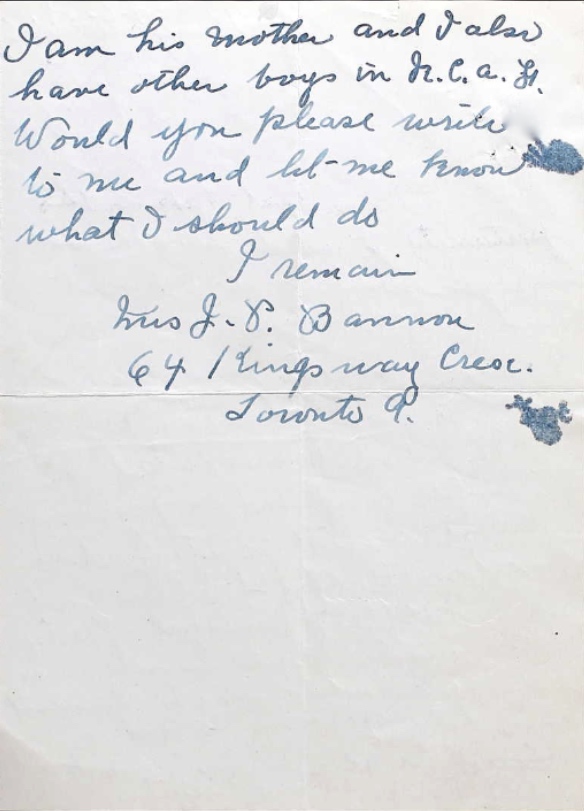 I am his mother and I also
have other boys in R.C.A.F.
Would you please write
to me and let me know
what I should do
I remain
Mrs J. P. Bannon
64 Kingsway Cresc.
Toronto 9.